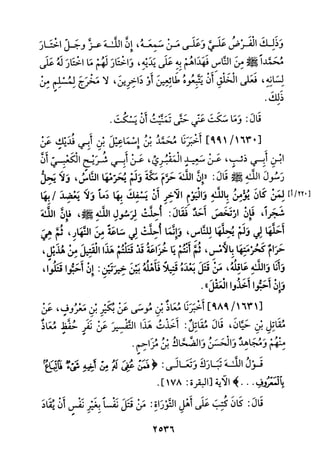 وَذَلِكَ الْفَرْضُ عَلَيَّ وَعَلَى مَنْ سَمِعَهُ، إِنَّ اللَّهَ عزَّ وجَلَّ اخْتَارَ
مُحَمَّداً ﷺ مِنَ النَّاسِ فَهَدَاهُمْ بِهِ عَلَى يَدَيْهِ، وَاخْتَارَ لَهُمْ مَا اخْتَارَ لَهُ عَلَى
لِسَانِهِ، فَعَلَى الْخَلْقِ أَنْ يَتَّبِعُوهُ طَائِعِينَ أَوْ دَاخِرِينَ، لَا مَخْرَجَ لِمُسْلِمٍ مِنْ
ذَلِكَ.
قَالَ: وَمَا سَكَتَ عَنِّي حَتَّى تَمَنَّيْتُ أَنْ يَسْكُتَ.
[١٦٣٠/ ٩٩١] أَخْبَرَنَا مُحَمَّدُ بْنُ إِسْمَاعِيْلَ بْنِ أَبِي فُدَيْكٍ عَنْ
ابْنِ أَبِي ذئبٍ، عَنْ سَعِيدٍ الْمَقْبُرِيِّ، عَنْ أَبِي شُرَيْحٍ الْكَعْبِيِّ أَنَّ
رَسُولَ اللَّهِ ﷺ قَالَ: «إِنَّ اللَّهَ حَرَّمَ مَكَّةَ وَلَمْ يُحَرِّمْهَا النَّاسُ، وَلَا يَحِلُّ
لِمَنْ كَانَ يُؤْمِنُ بِاللَّهِ وَالْيَوْمِ الْآخِرِ أَنْ يَسْفِكَ بِهَا دَماً وَلَا يَعْضِدَ / بِهَا [٢٢٠/أ]
شَجَراً، فَإِنْ ارْتَخَصَ أَحَدٌ فَقَالَ: أُحِلَّتْ لِرَسُولِ اللَّهِ ﷺ، فَإِنَّ اللَّهَ
أَحَلَّهَا لِي وَلَمْ يُحِلَّهَا لِلنَّاسِ، وَإِنَّمَا أُحِلَّتْ لِي سَاعَةً مِنَ النَّهَارِ، ثُمَّ هِيَ
حَرَامٌ كَحُرْمَتِهَا بِالْأَمْسِ، ثُمَّ أَنْتُمْ يَا خُزَاعَةُ قَدْ قَتَلْتُمْ هَذَا الْقَتِيلَ مِنْ هُذَيْلٍ،
وَأَنَا وَاللَّهِ عَاقِلُهُ، مَنْ قَتَلَ بَعْدَهُ قَتِيلاً فَأَهْلُهُ بَيْنَ خِيَرَتَيْنِ: إِنْ أَحَبُّوا قَتَلُوا،
وَإِنْ أَحَبُّوا أَخَذُوا الْعَقْلَ».
[١٦٣١/ ٩٨٩] أَخْبَرَنَا مُعَاذُ بْنُ مُوسَى عَنْ بُكَيْرِ بْنِ مَعْرُوفٍ، عَنْ
مُقَاتِلِ بْنِ حَيَّانَ، قَالَ مُقَاتِلٌ: أَخَذْتُ هَذَا التَّفْسِيرَ عَنْ نَفَرٍ حُفَّظٍ مُعَاذٌ
مِنْهُمْ وَمُجَاهِدٌ وَالْحَسَنُ وَالضَّحَّاكُ بْنُ مُزَاحِمٍ.
قَوْلُ اللَّهِ تَبَارَكَ وَتَعَالَى: ﴿فَمَنْ عُفِيَ لَهُ مِنْ أَخِيهِ شَيْءٌ فَاتِّبَاعٌ
بِالْمَعْرُوفِ...﴾ الآية [البقرة: ١٧٨].
قَالَ: كَانَ كُتِبَ عَلَى أَهْلِ التَّوْرَاةِ: مَنْ قَتَلَ نَفْساً بِغَيْرِ نَفْسٍ أَنْ يُقَادَ
٢٥٣٦